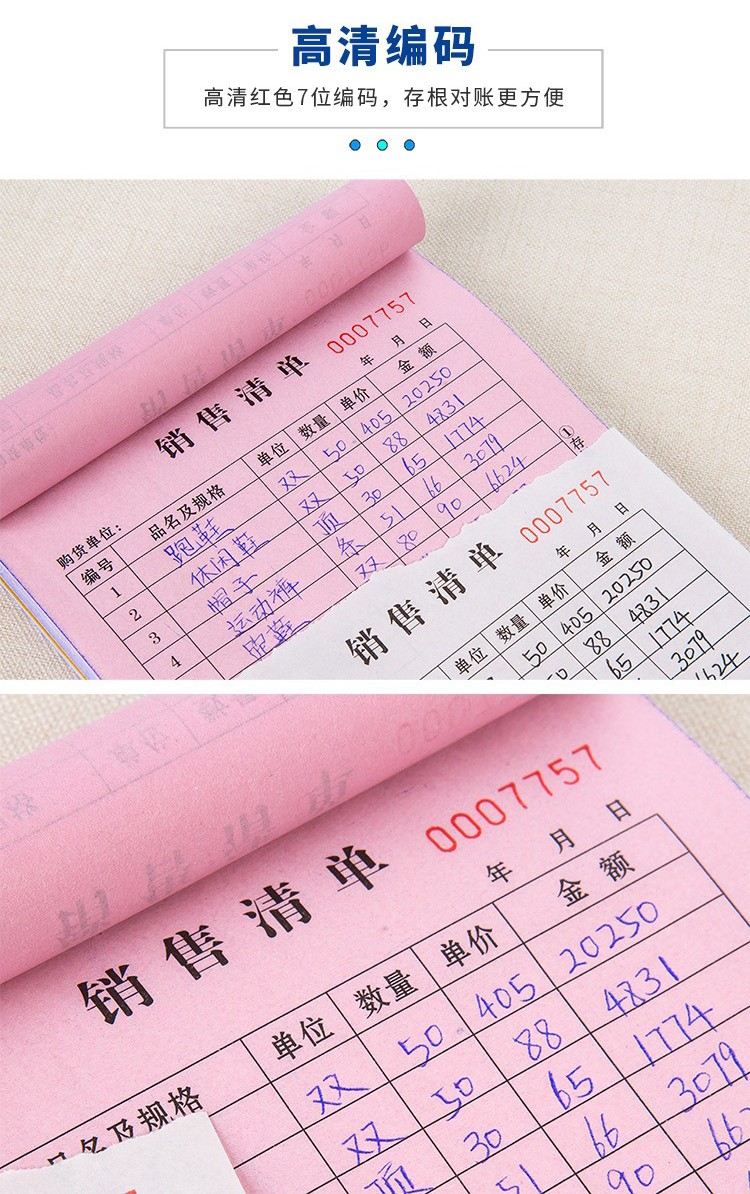 高清编码
高清红色7位编码，存根对账更方便
销售清单 0007757
年 月 日
购货单位：
编号 品名及规格 单位 数量 单价 金额
1 跑鞋 双 50 405 20250
2 休闲鞋 双 50 88 4831
3 帽子 顶 30 65 1774
4 运动裤 条 51 66 3079
跑鞋 双 80 90 6624
①存
销售清单 0007757
年 月 日
单位 数量 单价 金额
50 405 20250
88 4831
65 1774
3079
624
销售清单 0007757
年 月 日
品名及规格 单位 数量 单价 金额
双 50 405 20250
双 50 88 4831
顶 30 65 1774
51 66 3079
90 66